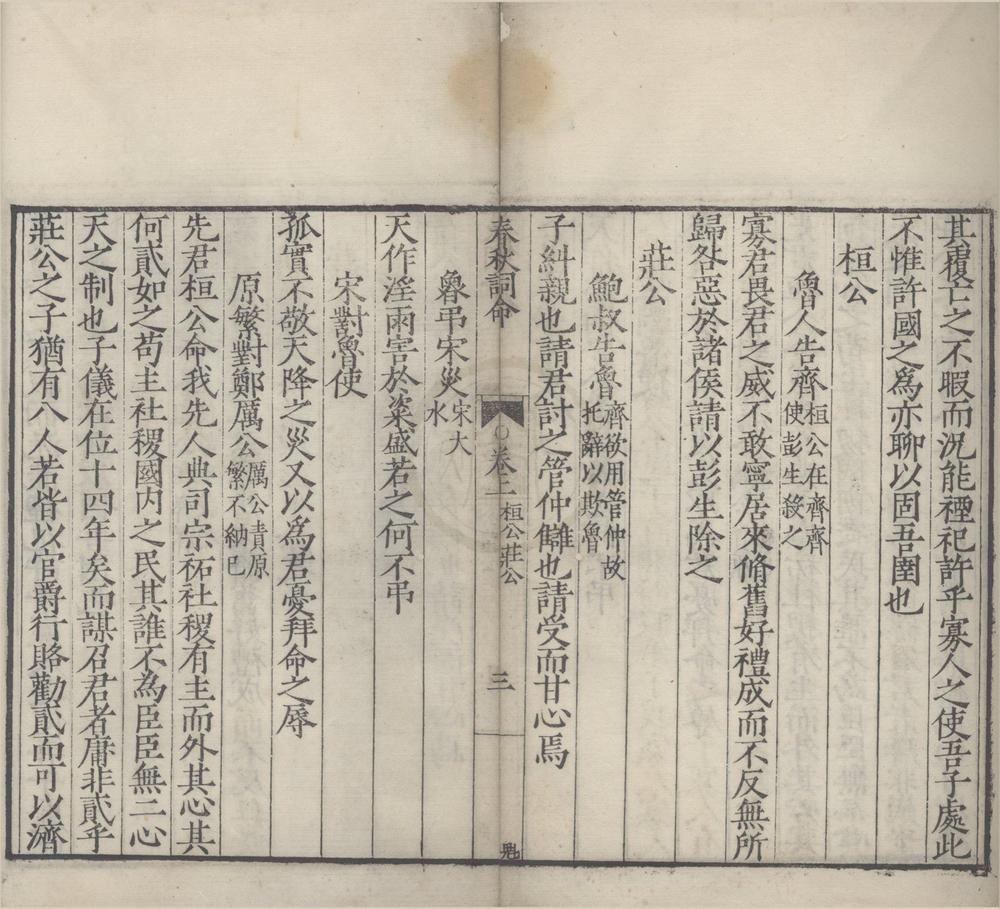 其覆亡之不暇而況能禋祀許乎寡人之使吾子處此
不惟許國之爲亦聊以固吾圉也
桓公
魯人告齊桓公在齊齊使彭生殺之
寡君畏君之威不敢寧居來脩舊好禮成而不反無所
歸咎惡於諸侯請以彭生除之
莊公
鮑叔告魯齊欲用管仲故托辭以欺魯
子糾親也請君討之管仲讎也請受而甘心焉
春秋詞命
卷二
桓公莊公
三
魯弔宋災宋大水
天作淫雨害於粢盛若之何不弔
宋對魯使
孤實不敬天降之災又以爲君憂拜命之辱
原繁對鄭厲公厲公責原繁不納己
先君桓公命我先人典司宗祏社稷有主而外其心其
何貳如之苟主社稷國内之民其誰不為臣臣無二心
天之制也子儀在位十四年矣而謀召君者庸非貳乎
莊公之子猶有八人若皆以官爵行賂勸貳而可以濟